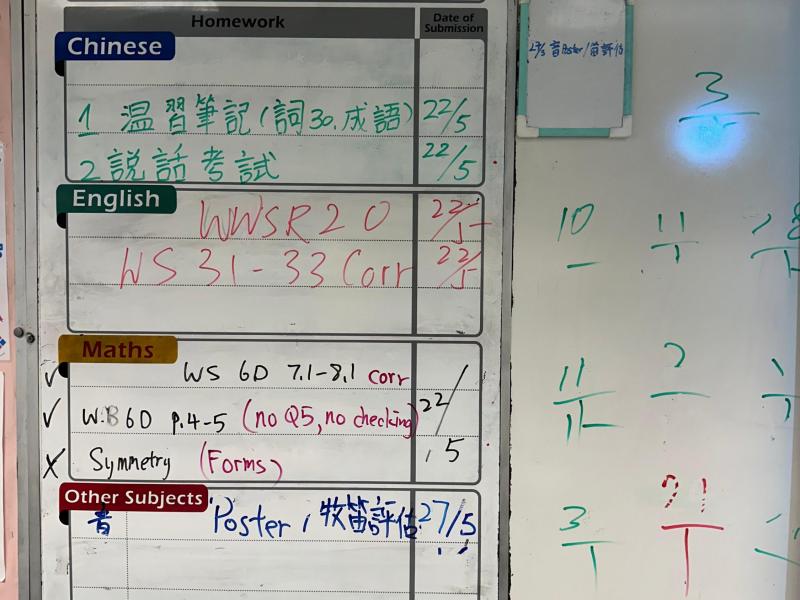 Homework
Date of Submission
Chinese
1 温習筆記(詞30.成語) 22/5
2 説話考試 22/5
English
WWSR20 22/5
WS 31-33 Corr 22/5
Maths
✓ WS 6D 7.1-8.1 corr
✓ W.B 6D p.4-5 (no Q5, no checking) 22/
X Symmetry (Forms) 5
Other Subjects
音 Poster, 牧笛評估 27/5
3
10 11
11
11 2
3
1